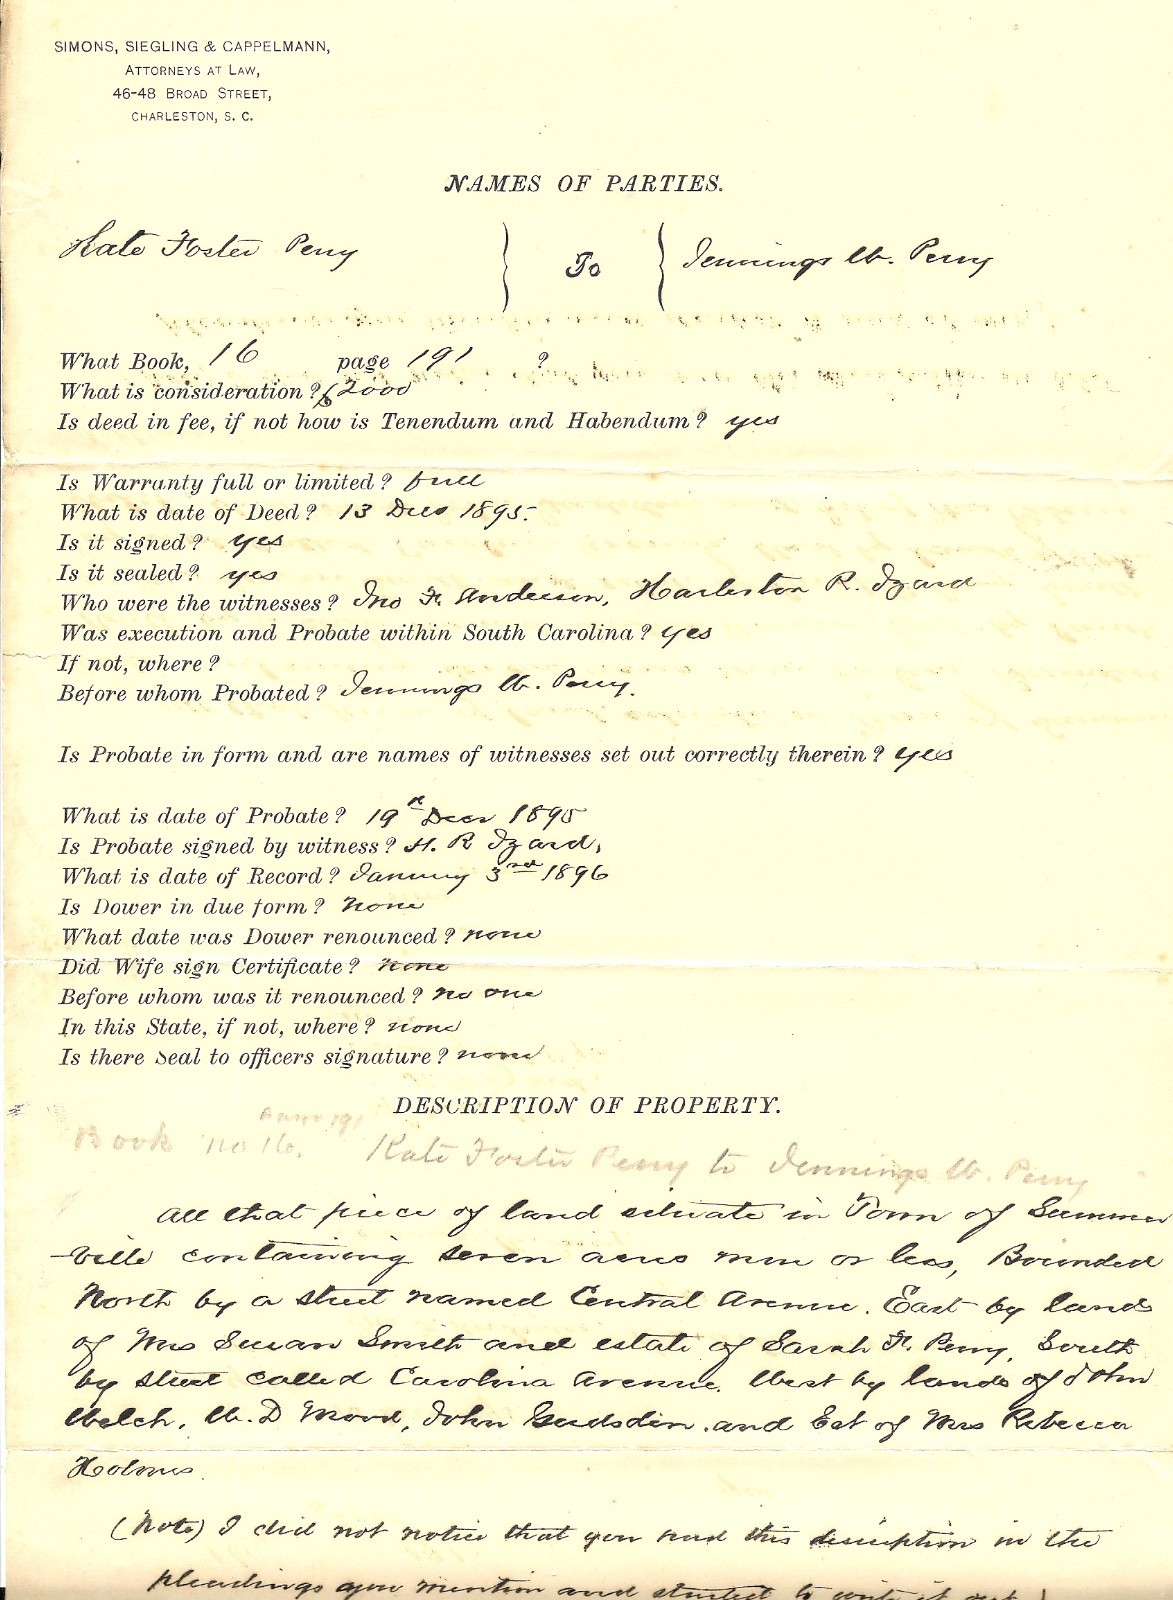 SIMONS, SIEGLING & CAPPELMANN,
ATTORNEYS AT LAW,
46-48 BROAD STREET,
CHARLESTON, S. C.
NAMES OF PARTIES.
Kate Foster Perry } To { Jennings W. Perry
What Book, 16 page 191 ?
What is consideration? $2000
Is deed in fee, if not how is Tenendum and Habendum? yes
Is Warranty full or limited? full
What is date of Deed? 13 Dec 1895.
Is it signed? yes
Is it sealed? yes
Who were the witnesses? Jno F. Anderson, Harleston R. Izard
Was execution and Probate within South Carolina? yes
If not, where?
Before whom Probated? Jennings W. Perry.
Is Probate in form and are names of witnesses set out correctly therein? yes
What is date of Probate? 19th Decr 1895
Is Probate signed by witness? H. R Izard,
What is date of Record? January 3rd 1896
Is Dower in due form? none
What date was Dower renounced? none
Did Wife sign Certificate? none
Before whom was it renounced? no one
In this State, if not, where? none
Is there Seal to officers signature? none
DESCRIPTION OF PROPERTY.
page 191
Book no 16. Kate Foster Perry to Jennings W. Perry
All that piece of land situate in Town of Summer
-ville containing seven acres more or less, Bounded
North by a street named Central Avenue. East by lands
of Mrs Susan Smith and estate of Sarah F. Perry, South
by street called Carolina Avenue. West by lands of John
Welch, W. D Mood, John and Est of Mrs Rebecca
Holmes.
(Note) I did not notice that you read this description in the
pleadings you mention and started to write it out)